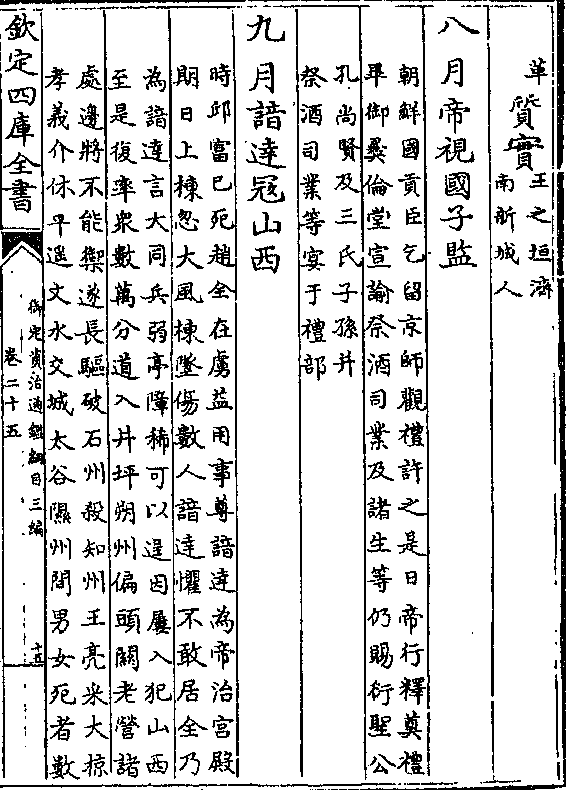 革 質實 王之垣濟
南新城人
八月帝視國子監
朝鮮國貢臣乞留京師觀禮許之是日帝行釋奠禮
畢御彞倫堂宣諭祭酒司業及諸生等仍賜衍聖公
孔尚賢及三氏子孫并
祭酒司業等宴于禮部
九月諳達冦山西
時邱富已死趙全在虜益用事尊諳達為帝治宫殿
期日上棟忽大風棟墜傷數人諳達懼不敢居全乃
為諳達言大同兵弱亭障稀可以逞因屢入犯山西
至是復率衆數萬分道入井坪朔州偏頭關老營諸
處邊將不能禦遂長驅破石州殺知州王亮采大掠
孝義介休平遥文水交城太谷隰州間男女死者數
欽定四庫全書
御定資治通鑑綱目三編
卷二十五
十五